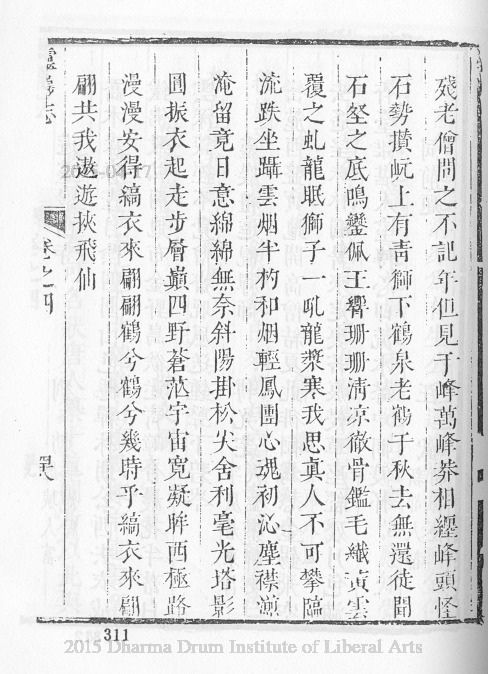 殘老僧問之不記年但見千峰萬峰莽相纏峰頭怪
石勢攢岏上有青獅下鶴泉老鶴千秋去無還徒聞
石堥之底鳴鑾佩玉響珊珊清凉徹骨鑑毛纖黃雲
覆之虬龍眠獅子一吼龍漦寒我思眞人不可攀臨
流趺坐躡雲烟半杓和烟輕鳳團心魂初沁塵襟湔
淹留竟日意綿綿無奈斜陽掛松尖舍利毫光塔影
圓振衣起走步層巔四野蒼茫宇宙寬凝眸西極路
漫漫安得縞衣來翩翩鶴兮鶴兮幾時乎縞衣來翩
翩共我遨遊挾飛仙
卷之四
311
2015 Dharma Drum Institute of Liberal Arts